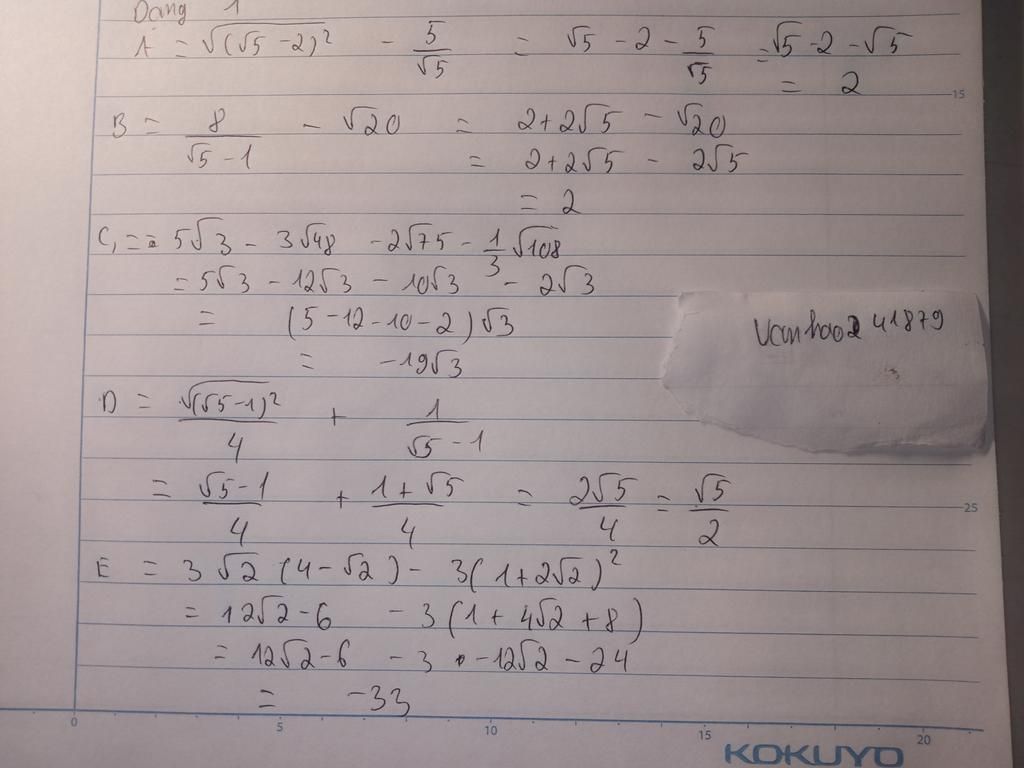 Dạng 1
A = √(√5 - 2)² - 5/√5 = √5 - 2 - 5/√5 = √5 - 2 - √5
= 2
15
B = 8/(√5 - 1) - √20 = 2 + 2√5 - √20
= 2 + 2√5 - 2√5
= 2
C, = = 5√3 - 3√48 - 2√75 - 1/3 √108
= 5√3 - 12√3 - 10√3 - 2√3
= (5 - 12 - 10 - 2)√3
Vanhao241879
= -19√3
D = √(√5 - 1)²/4 + 1/(√5 - 1)
= (√5 - 1)/4 + (1 + √5)/4 = 2√5/4 = √5/2
25
E = 3√2 (4 - √2) - 3(1 + 2√2)²
= 12√2 - 6 - 3(1 + 4√2 + 8)
= 12√2 - 6 - 3 - 12√2 - 24
= -33
0 5 10 15 20
KOKUYO